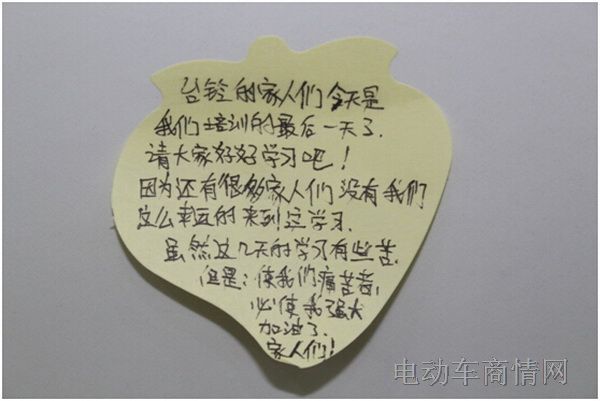 台铃的家人们今天是
我们培训的最后一天了.
请大家好好学习吧！
因为还有很多家人们没有我们
这么幸运的来到这学习.
虽然这几天的学习有些苦.
但是：使我们痛苦者，
必使我强大
加油了.
家人们！
电动车商情网